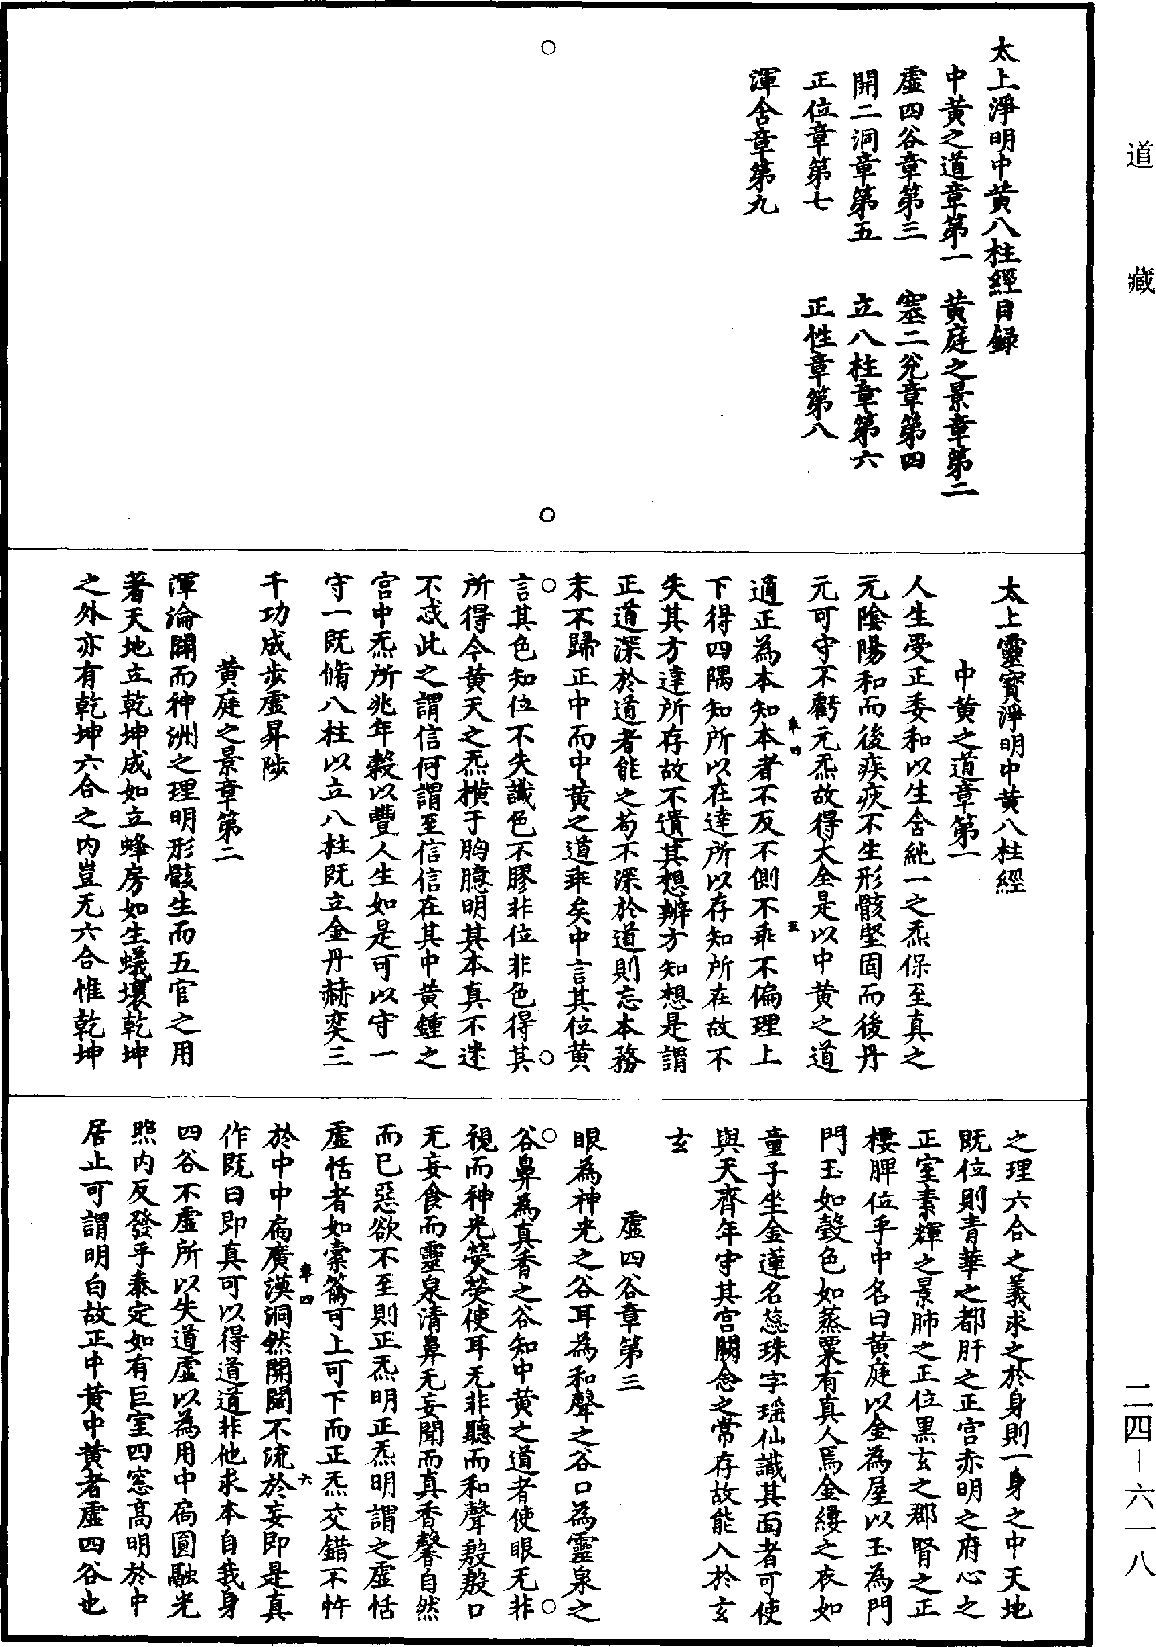 道藏
太上淨明中黃八柱經目錄
中黃之道章第一　黃庭之景章第二
虛四谷章第三　塞二兌章第四
開二洞章第五　立八柱章第六
正位章第七　正性章第八
渾合章第九
太上靈寶淨明中黃八柱經
中黃之道章第一
人生受正委和以生含純一之炁保至真之
元陰陽和而後疾疢不生形骸堅固而後丹
元可守不虧元炁故得大全是以中黃之道
適正為本知本者不反不側不乖不偏理上
下得四隅知所以在達所以存知所在故不
失其方達所存故不遺其想辨方知想是謂
正道深於道者能之苟不深於道則忘本務
末不歸正中而中黃之道乖矣中言其位黃
言其色知位不失識色不膠非位非色得其
所得令黃天之炁橫于胸臆明其本真不迷
不惑此之謂信何謂至信信在其中黃鍾之
宮中炁所兆年穀以豐人生如是可以守一
守一既脩八柱以立八柱既立金丹赫奕三
千功成步虛昇陟
黃庭之景章第二
渾淪闢而神洲之理明形骸生而五官之用
著天地立乾坤成如立蜂房如生蟻壤乾坤
之外亦有乾坤六合之內豈无六合惟乾坤
之理六合之義求之於身則一身之中天地
既位則青華之都肝之正宮亦明之府心之
正室素輝之景肺之正位黑玄之郡腎之正
樓脾位乎中名曰黃庭以金為屋以玉為門
門玉如瑿色如蒸栗有真人焉金縷之衣如
童子坐金蓮名蕊珠字瑤仙識其面者可使
與天齊年守其宮闕念之常存故能入於玄
玄
虛四谷章第三
眼為神光之谷耳為和聲之谷口為靈泉之
谷鼻為真香之谷知中黃之道者使眼无非
視而神光熒熒使耳无非聽而和聲殷殷口
无妄食而靈泉清鼻无妄聞而真香馨自然
而已惡欲不至則正炁明正炁明謂之虛恬
虛恬者如橐籥可上可下而正炁交錯不忤
於中中扃廣漠洞然開闊不流於妄即是真
作既曰即真可以得道道非他求本自我身
四谷不虛所以失道虛以為用中扃圓融光
照內反發乎泰定如有巨室四窓高明於中
居止可謂明白故正中黃中黃者虛四谷也
二四－六一八